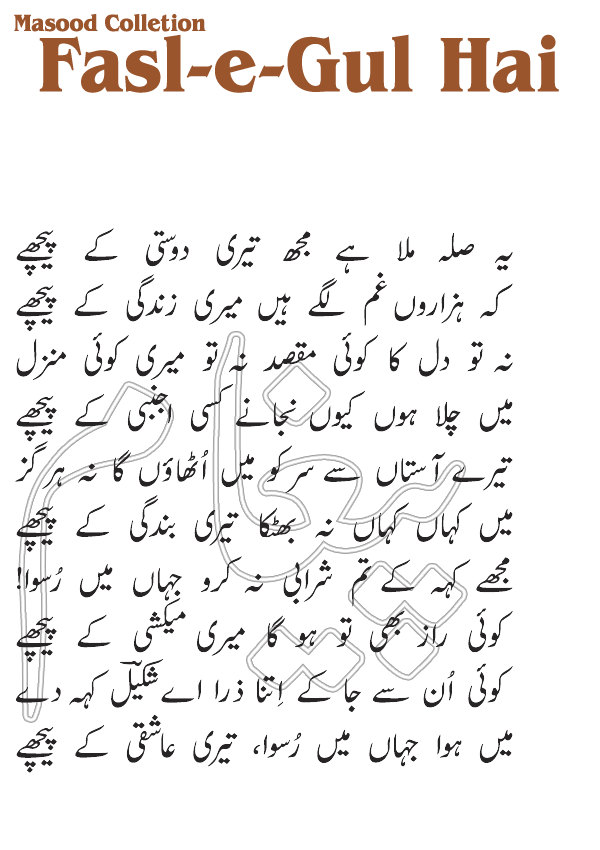 Masood Colletion
Fasl-e-Gul Hai
یہ صلہ ملا ہے مجھ تیری دوستی کے پیچھے
کہ ہزاروں غم لگے ہیں میری زندگی کے پیچھے
نہ تو دل کا کوئی مقصد نہ تو میری کوئی منزل
میں چلا ہوں کیوں نجانے کسی اجنبی کے پیچھے
تیرے آستاں سے سر کو میں اُٹھاؤں گا نہ ہرگز
میں کہاں کہاں نہ بھٹکا تیری بندگی کے پیچھے
مجھے کہہ کے تم شرابی نہ کرو جہاں میں رُسوا!
کوئی راز بھی تو ہو گا میری میکشی کے پیچھے
کوئی اُن سے جا کے اِتنا ذرا اے شکیلؔ کہہ دے
میں ہوا جہاں میں رُسوا، تیری عاشقی کے پیچھے
پیغام